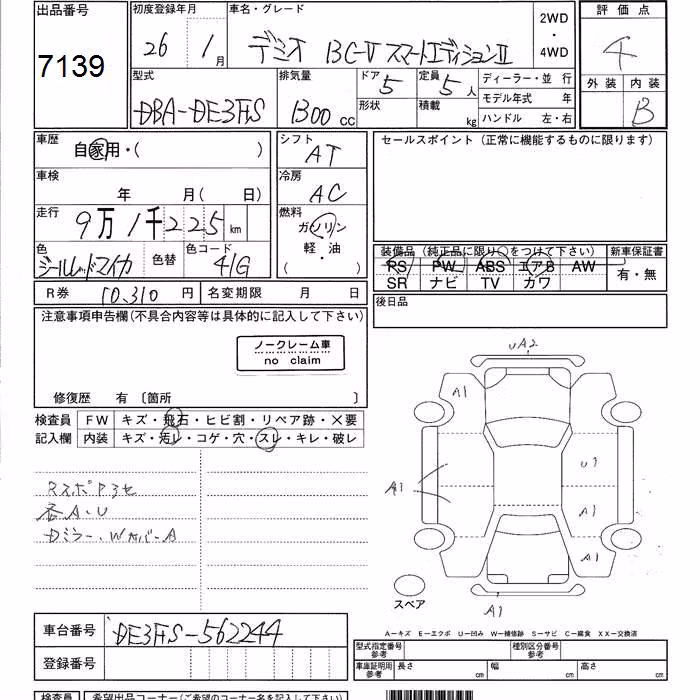 出品番号 初度登録年月 車名・グレード 2WD・4WD 評価点
7139 26年 1月 デミオ 13C-V スマートエディションⅡ 4
型式 排気量 ドア 5 定員 5人 ディーラー・並行 外装 内装
DBA-DE3FS 1300cc 形状 積載 kg モデル年式 年 B
ハンドル 左・右
車歴 自家用・( ) シフト AT セールスポイント(正常に機能するものに限ります)
車検 年 月(日) 冷房 AC
走行 9万1千225km 燃料 ガソリン
軽・油
( )
色 色替 色コード 41G 装備品(純正品に限り○をつけて下さい) 新車保証書
PS PW ABS エアB AW 有・無
SR ナビ TV カワ
R券 10,310円 名変期限 月 日 後日品
注意事項申告欄(不具合内容等は具体的に記入して下さい)
ノークレーム車
no claim
修復歴 有〔箇所 〕
検査員 FW キズ・飛石・ヒビ割・リペア跡・×要
記入欄 内装 キズ・汚レ・コゲ・穴・スレ・キレ・破レ
各A・U
Dミラー、WカバーA
UA2
A1
A1
U1
A1
A1
A1
スペア
A−キズ E−エクボ U−凹み W−補修跡 S−サビ C−腐食 XX−交換済
車台番号 DE3FS-562244 型式指定番号 参考 種別区分番号 参考
登録番号 車庫証明用 参考 長さ cm 幅 cm 高さ cm
検査員 希望出品コーナー(ご希望のコーナー名を記入して下さい)